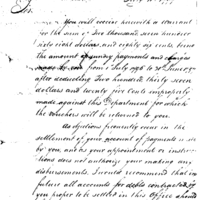 Sir
You will receive herewith a Warrant
for the sum of Two thousand seven hundred
sixty eight dollars, and eighty six cents being
the amount of sundry payments and charges
made by from 1 July 98 to 30 June 99
after deducting Two hundred thirty seven
dollars and twenty five cents improperly
made against this Department for which
the vouchers will be returned to you.
As questions frequently occur in the
settlement of your account of payments made
by you, and as your appointment or instruc
tions does not authorize your making any
disbursements. I would recommend that in
future all accounts for debts contracted by
you proper to be settled in this Office should